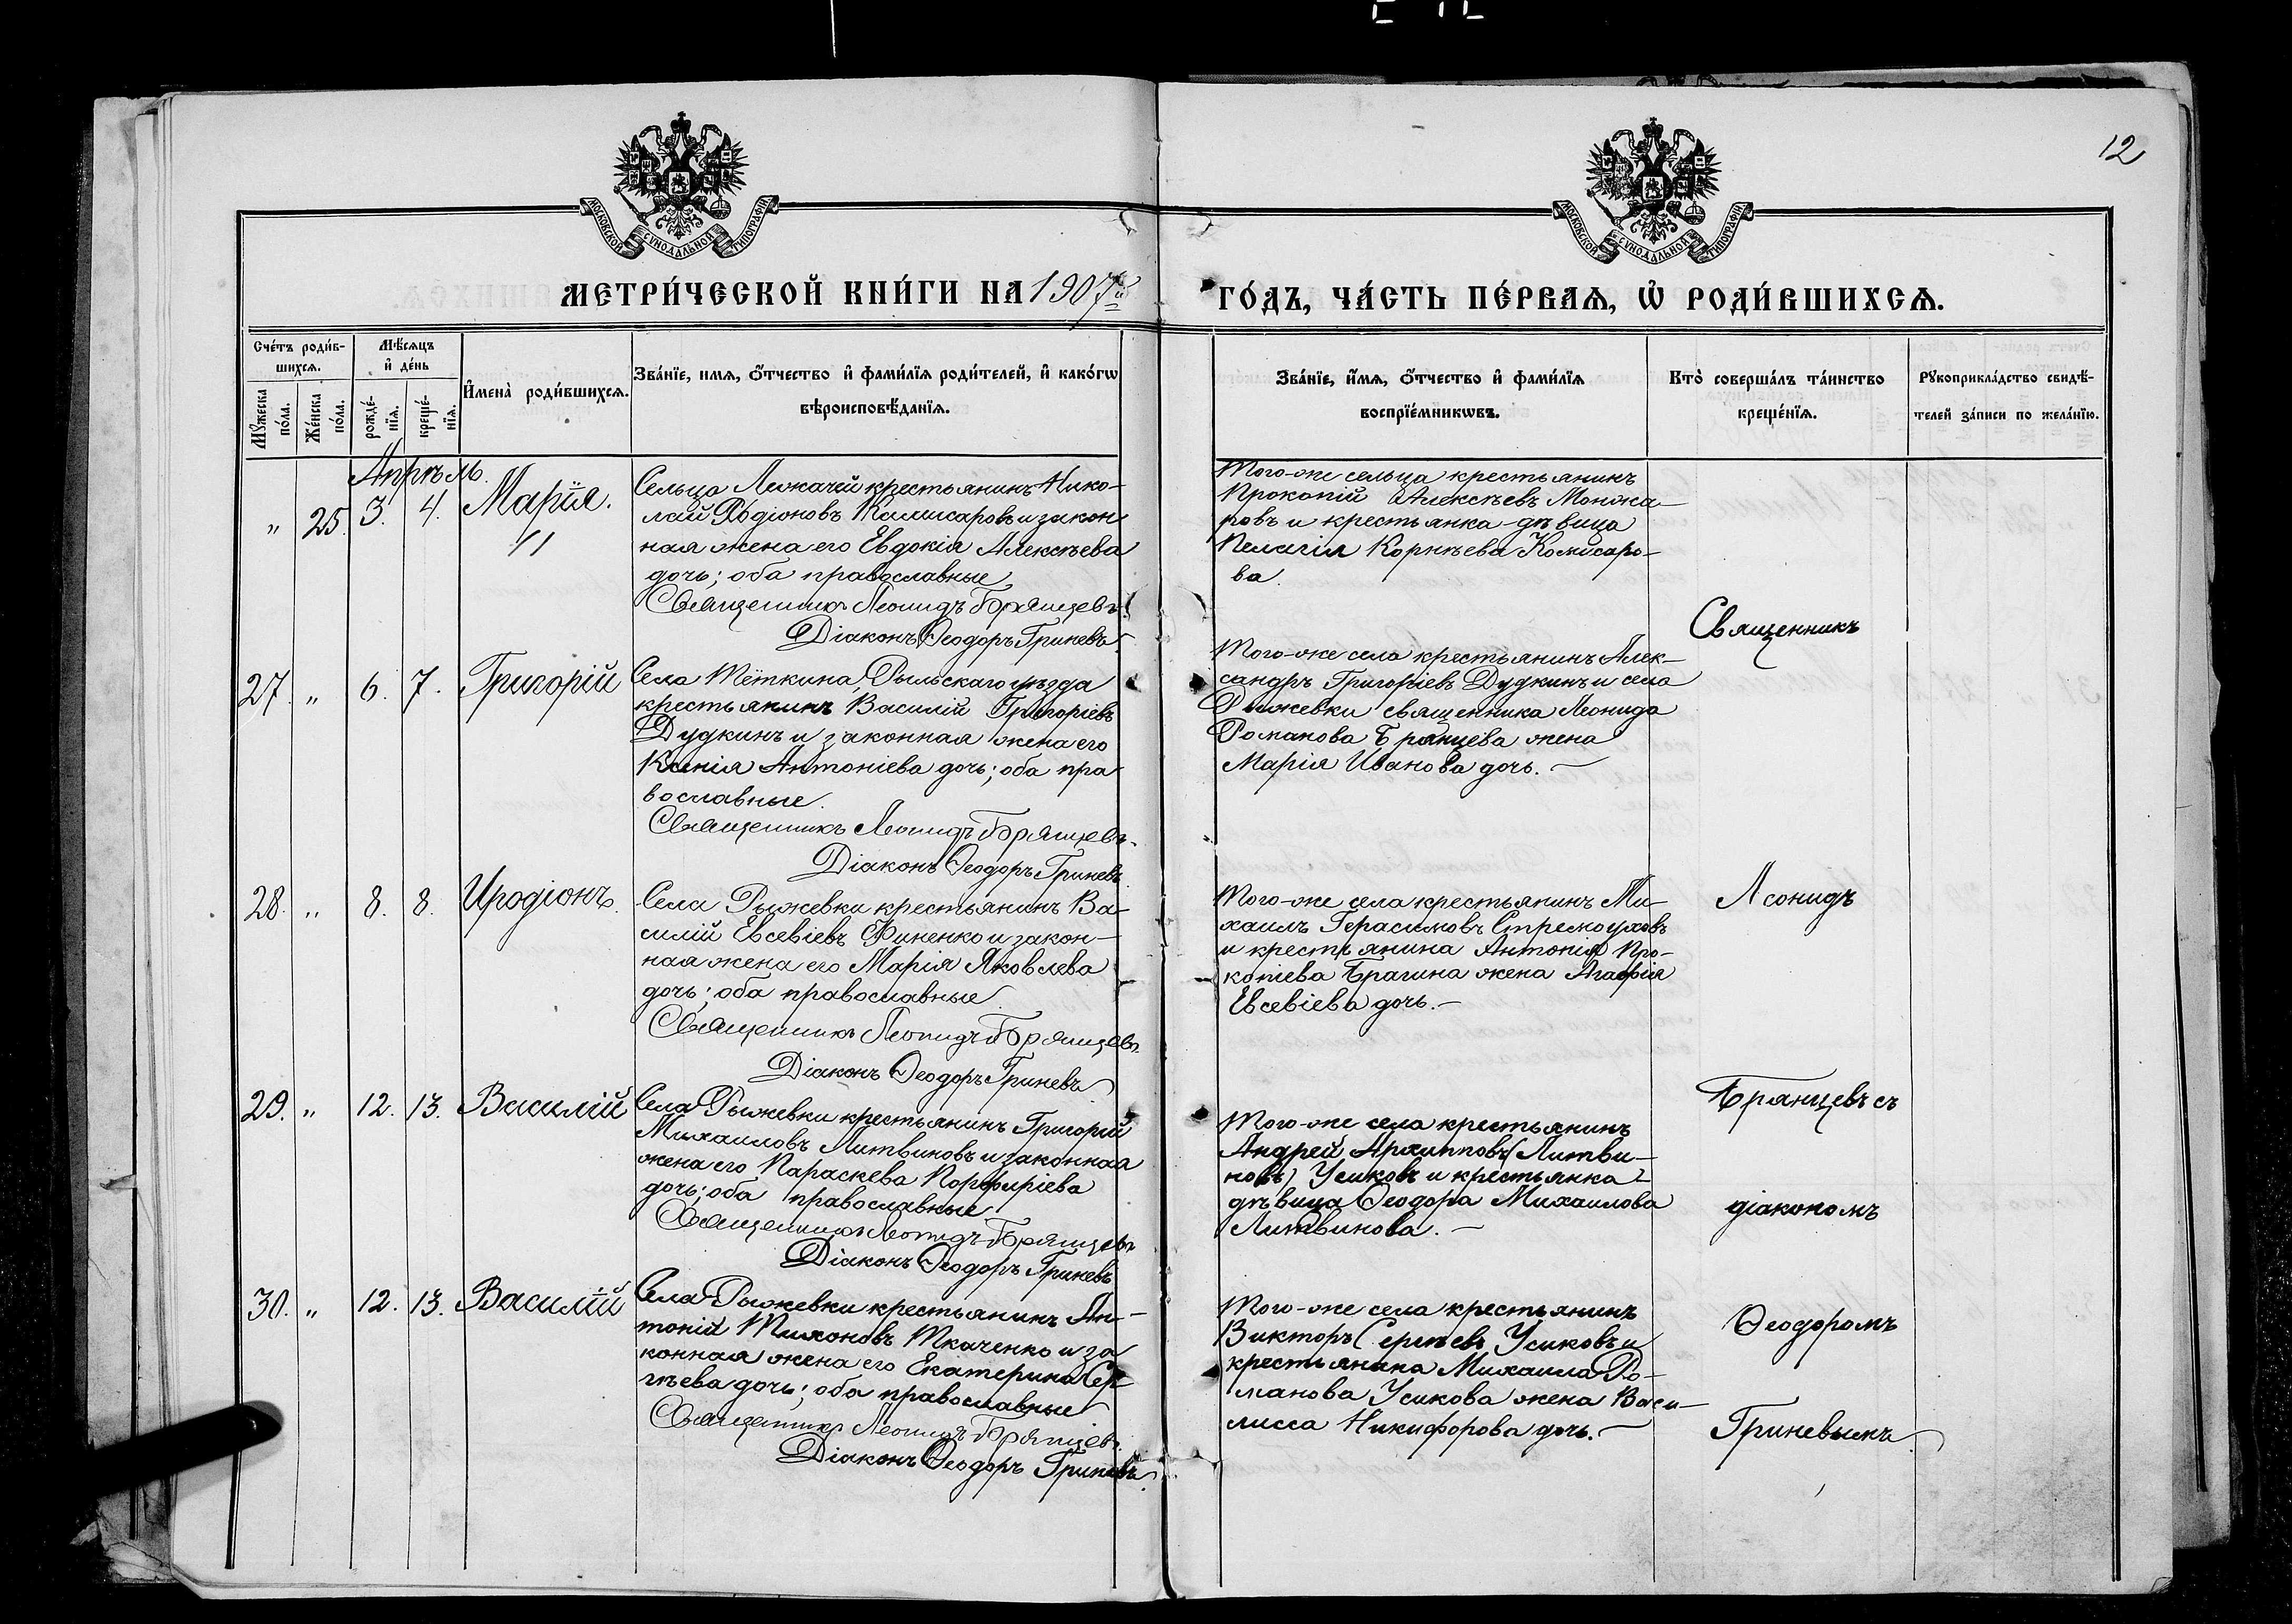 12
МОСКОВСКОЙ СУНОДАЛЬНОЙ ТИПОГРАФІИ
МОСКОВСКОЙ СУНОДАЛЬНОЙ ТИПОГРАФІИ
МЕТРИ́ЧЕСКОЙ КНИ́ГИ НА 1907й
ГО́ДЪ, ЧА́СТЬ ПЕ́РВАѦ, Ѡ҆ РОДИ́ВШИХСѦ.
Сче́тъ роди́в-
шихсѧ.
Мꙋжеска по́ла.
Же́нска по́ла.
Мѣ́сяцъ
и҆ де́нь
рожде́-
нїѧ.
креще́-
нїѧ.
И҆мена̀ роди́вшихсѧ.
Зва́нїе, имѧ, о҆́тчество и҆ фами́лїѧ роди́телей, и҆ како́гѡ
вѣроисповѣ́данїѧ.
Зва́нїе, и҆́мѧ, о҆́тчество и҆ фами́лїѧ
воспрїе́мникѡвъ.
Кто̀ соверша́лъ та́инство
креще́нїѧ.
Рꙋкоприкла́дство свидѣ́-
телей за́писи по жела́нїю.
Апрѣль
" 25. 3. 4. Марія.
Сельца Лежачей крестьянинъ Нико-
лай Родіоновъ Камисаровъ и закон
ная жена его Евдокія Алексѣева
дочь; оба православные
Священникъ Леонидъ Брянцевъ
Діаконъ Ѳеодоръ Гриневъ.
Того-же сельца крестьянинъ
Прокопій Алексѣевъ Монжа-
ровъ и крестьянка-дѣвица
Пелагія Корнѣева Комисаро-
ва.
27. " 6. 7. Григорій
Села Тёткина, Рыльскаго уѣзда
крестьянинъ Василій Григоріевъ
Дудкинъ и законная жена его
Ксенія Антоніева дочь; оба пра
вославные.
Священникъ Леонидъ Брянцевъ.
Діаконъ Ѳеодоръ Гриневъ.
Того-же села крестьянинъ Алек-
сандръ Григоріевъ Дудкинъ и села
Рыжевки священника Леонида
Романова Брянцева жена
Марія Иванова дочь. —
28. " 8. 8. Иродіонъ.
Села Рыжевки крестьянинъ Ва-
силій Евсевіевъ Финенко и закон-
ная жена его Марія Яковлева
дочь; оба православные.
Священникъ Леонидъ Брянцевъ.
Діаконъ Ѳеодоръ Гриневъ
Того-же села крестьянинъ Ми-
хаилъ Герасимовъ Стремоуховъ
и крестьянина Антонія Про-
копіева Брагина жена Агафія
Евсевіева дочь. —
29. " 12. 13. Василій
Села Рыжевки крестьянинъ Григорій
Михаиловъ Литвиновъ и законная
жена его Параскева Порфиріева
дочь; оба православные
Священникъ Леонидъ Брянцевъ
Діаконъ Ѳеодоръ Гриневъ
Того-же села крестьянинъ
Андрей Архипповъ (Литви-
новъ) Усиковъ и крестьянка-
дѣвица Ѳеодора Михаилова
Литвинова. —
30. " 12. 13. Василій
Села Рыжевки крестьянинъ Ан-
тоній Тихоновъ Ткаченко и за
конная жена его Екатерина Сер-
гѣева дочь; оба православные
Священникъ Леонидъ Брянцевъ.
Діаконъ Ѳеодоръ Гриневъ.
Того-же села крестьянинъ
Викторъ Сергѣевъ Усиковъ и
крестьянина Михаила Ро-
манова Усикова жена Васи-
лисса Никифорова дочь. —
Священникъ
Леонидъ
Брянцевъ съ
діакономъ
Ѳеодоромъ
Гриневымъ